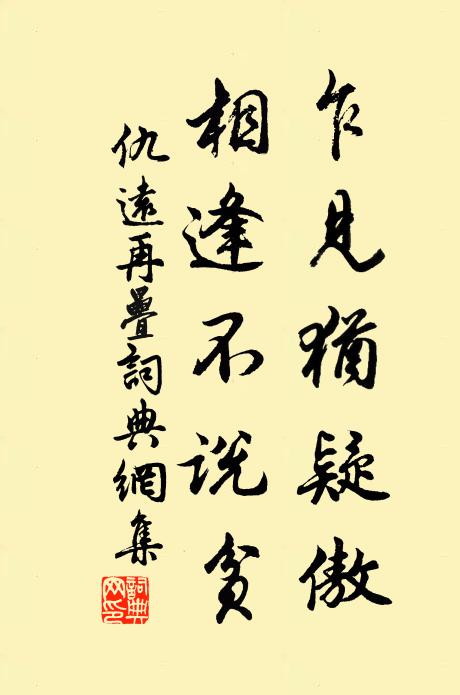 乍見猶疑傲
相逢不説貧
仇遠再疊詞典網集
詞典網印